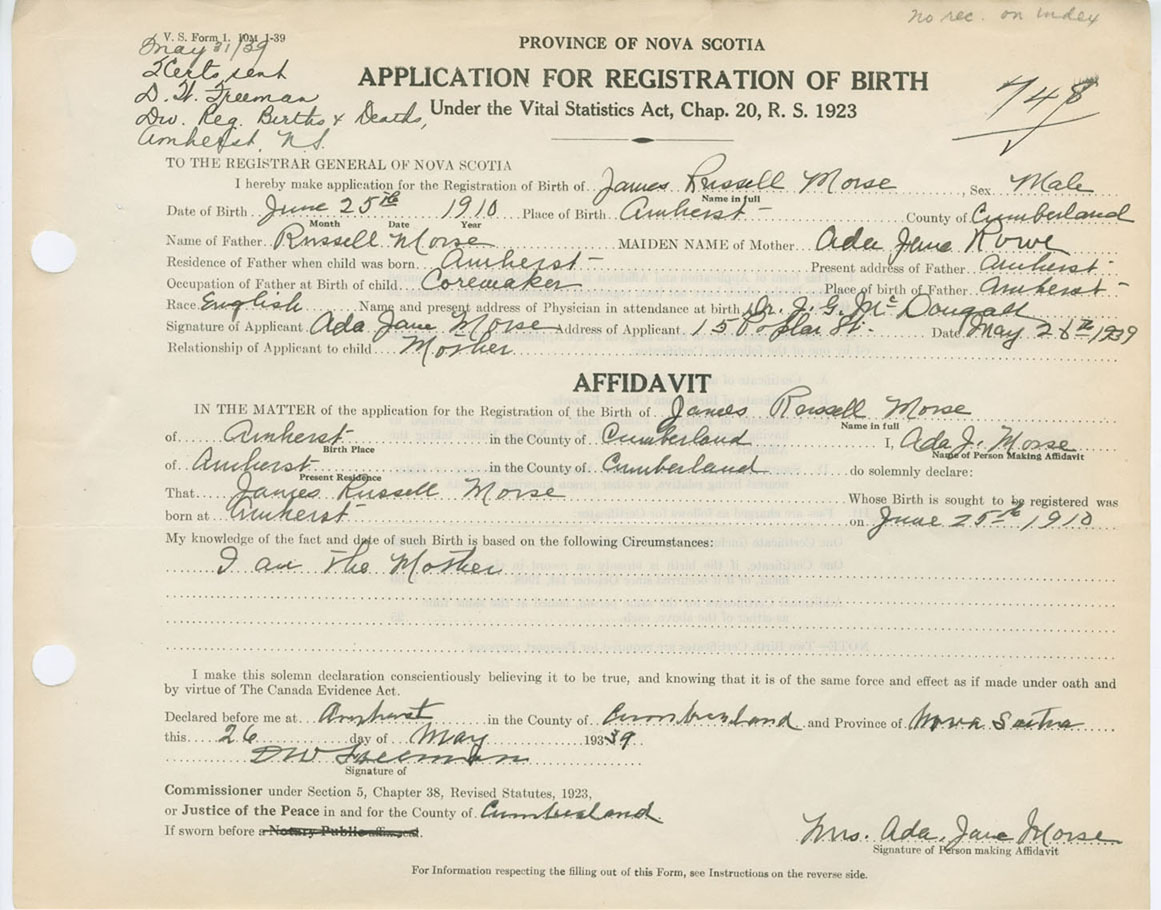 no rec. on index
V. S. Form 1. 10M 1-39
May 31/39
2 Certs sent
D. W. Freeman
Div. Reg. Births & Deaths,
Amherst, N.S.
PROVINCE OF NOVA SCOTIA
APPLICATION FOR REGISTRATION OF BIRTH
Under the Vital Statistics Act, Chap. 20, R. S. 1923
748
TO THE REGISTRAR GENERAL OF NOVA SCOTIA
I hereby make application for the Registration of Birth of James Russell Morse, Sex Male
Name in full
Date of Birth June 25th 1910 Place of Birth Amherst County of Cumberland
Month Date Year
Name of Father Russell Morse MAIDEN NAME of Mother Ada Jane Rowe
Residence of Father when child was born Amherst Present address of Father Amherst
Occupation of Father at Birth of child Coremaker Place of birth of Father Amherst
Race English Name and present address of Physician in attendance at birth Dr. J. G. McDougall
Signature of Applicant Ada Jane Morse Address of Applicant 15 Poplar St. Date May 26th 1939
Relationship of Applicant to child Mother
AFFIDAVIT
IN THE MATTER of the application for the Registration of the Birth of James Russell Morse
Name in full
of Amherst in the County of Cumberland I, Ada J. Morse
Birth Place Name of Person Making Affidavit
of Amherst in the County of Cumberland do solemnly declare:
Present Residence
That James Russell Morse Whose Birth is sought to be registered was
born at Amherst on June 25th 1910
My knowledge of the fact and date of such Birth is based on the following Circumstances:
I am the Mother
I make this solemn declaration conscientiously believing it to be true, and knowing that it is of the same force and effect as if made under oath and
by virtue of The Canada Evidence Act.
Declared before me at Amherst in the County of Cumberland and Province of Nova Scotia
this 26 day of May 1939
D W Freeman
Signature of
Commissioner under Section 5, Chapter 38, Revised Statutes, 1923,
or Justice of the Peace in and for the County of Cumberland.
If sworn before a Notary Public affix seal.
Mrs. Ada Jane Morse
Signature of Person making Affidavit
For Information respecting the filling out of this Form, see Instructions on the reverse side.